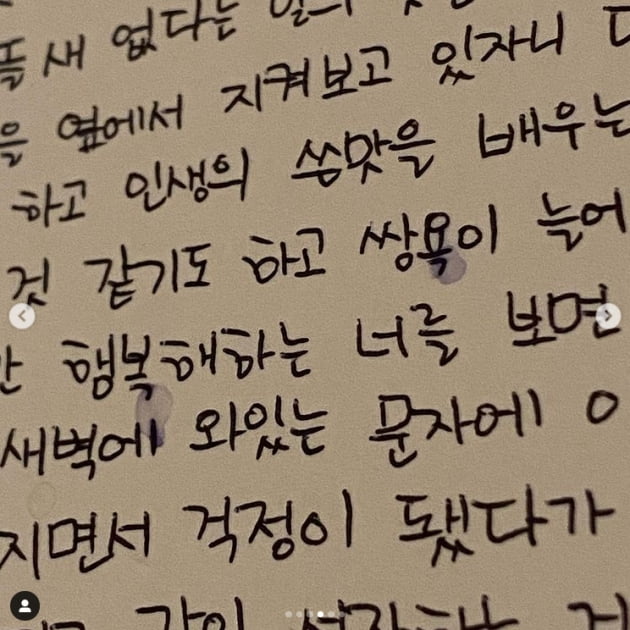 새 없다는
을 옆에서 지켜보고 있자니
하고 인생의 씀맛을 배우는
것 같기도 하고 쌍욕이 늘어
행복해하는 너를 보면
새벽에 와있는 문자에
지면서 걱정이 됐다가